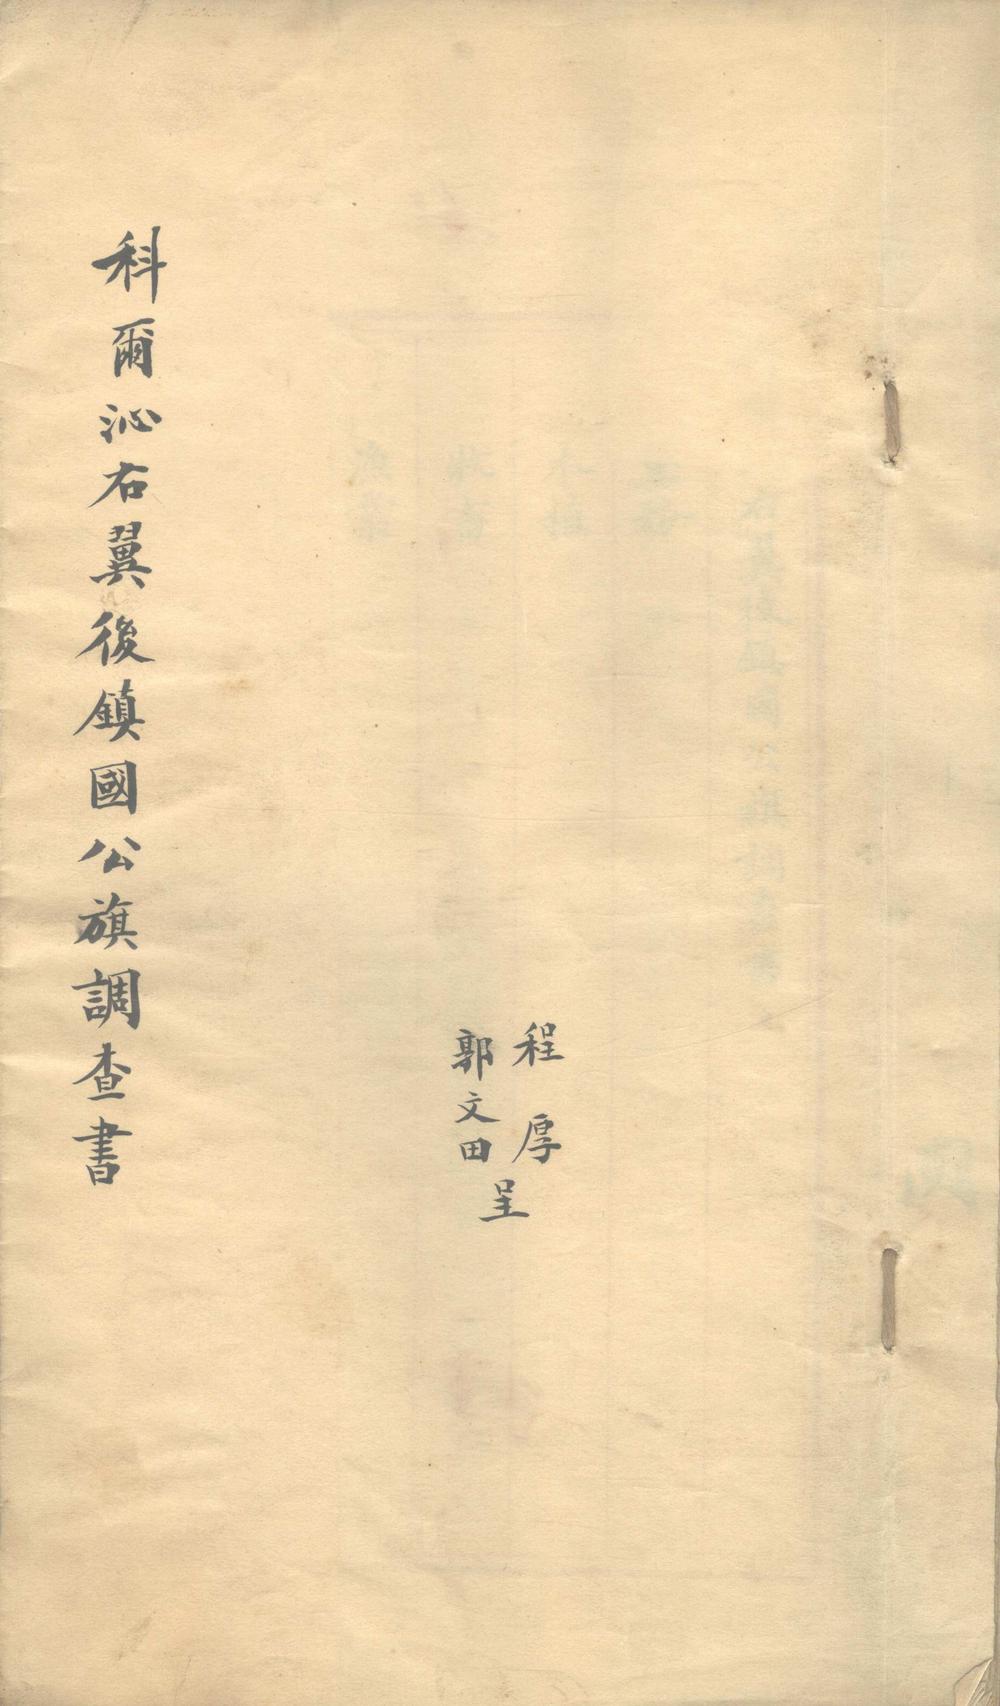 科爾沁右翼後鎮國公旗調查書
程厚
郭文田
呈